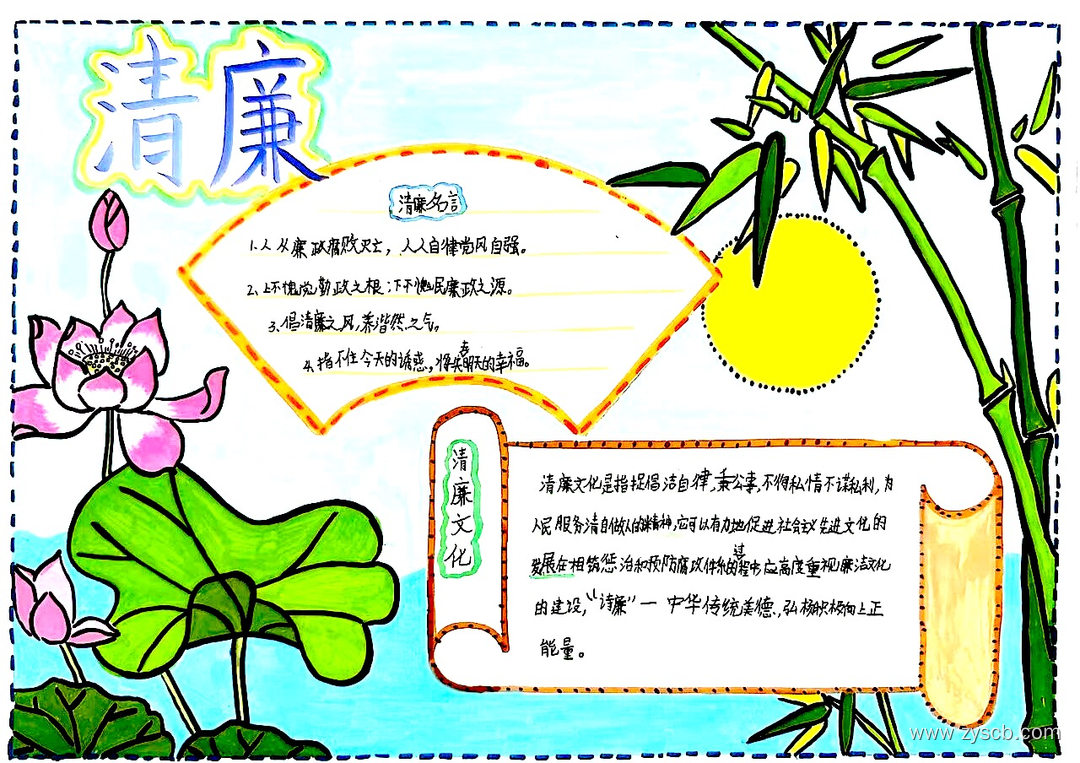 清廉
清廉名言
1.人人从廉政腐败灭亡，人人自律党风自强。
2、上不愧党勤政之根：下不愧民廉政之源。
3、倡清廉之风，养浩然之气。
4、挡不住今天的诱惑，将失去明天的幸福。
清廉文化
清廉文化是指提倡洁自律，秉公事，不徇私情不谋私利，为
人民服务清白做人的精神，它可以有力地促进社会主义先进文化的
发展在构筑惩治和预防腐败体系的基程中应高度重视廉洁文化
的建设，“清廉”一中华传统美德，弘扬积极向上正
能量。
www.zyscb.com